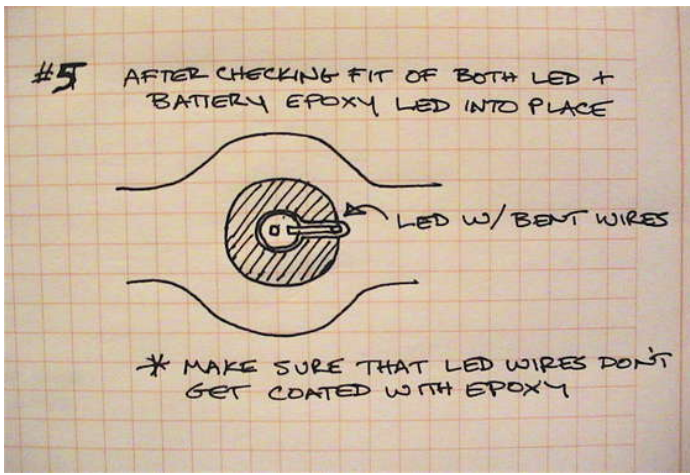 #5 AFTER CHECKING FIT OF BOTH LED +
BATTERY EPOXY LED INTO PLACE
LED W/ BENT WIRES
* MAKE SURE THAT LED WIRES DON'T
GET COATED WITH EPOXY